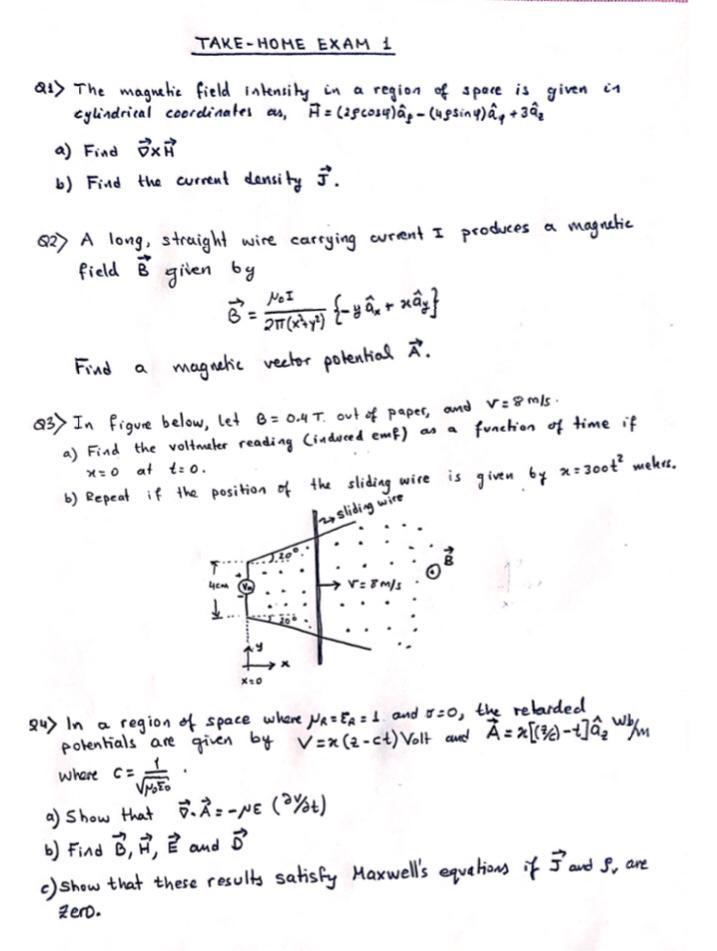 TAKE-HOME EXAM 1
Q1> The magnetic field intensity in a region of space is given in
cylindrical coordinates as, H⃗ = (2ρcosφ)âρ - (4ρsinφ)âφ + 3âz
a) Find ∇⃗xH⃗
b) Find the current density J⃗.
Q2> A long, straight wire carrying current I produces a magnetic
field B⃗ given by
B⃗ = μ₀I / 2π(x²+y²) {-y âx + xây}
Find a magnetic vector potential A⃗.
Q3> In figure below, let B = 0.4 T. out of paper, and V = 8 m/s.
a) Find the voltmeter reading (induced emf) as a function of time if
x=0 at t=0.
b) Repeat if the position of the sliding wire is given by x=300t² meters.
sliding wire
20°
4cm
Vm
V=8m/s
B⃗
20°
y
x
x=0
Q4> In a region of space where μR = εR = 1 and σ=0, the retarded
potentials are given by V=x(z-ct) Volt and A⃗ = x[(z/c)-t]âz Wb/m
where c = 1/√μ₀ε₀ .
a) Show that ∇⃗.A⃗ = -με (∂V/∂t)
b) Find B⃗, H⃗, E⃗ and D⃗
c) Show that these results satisfy Maxwell's equations if J⃗ and ρv are
zero.